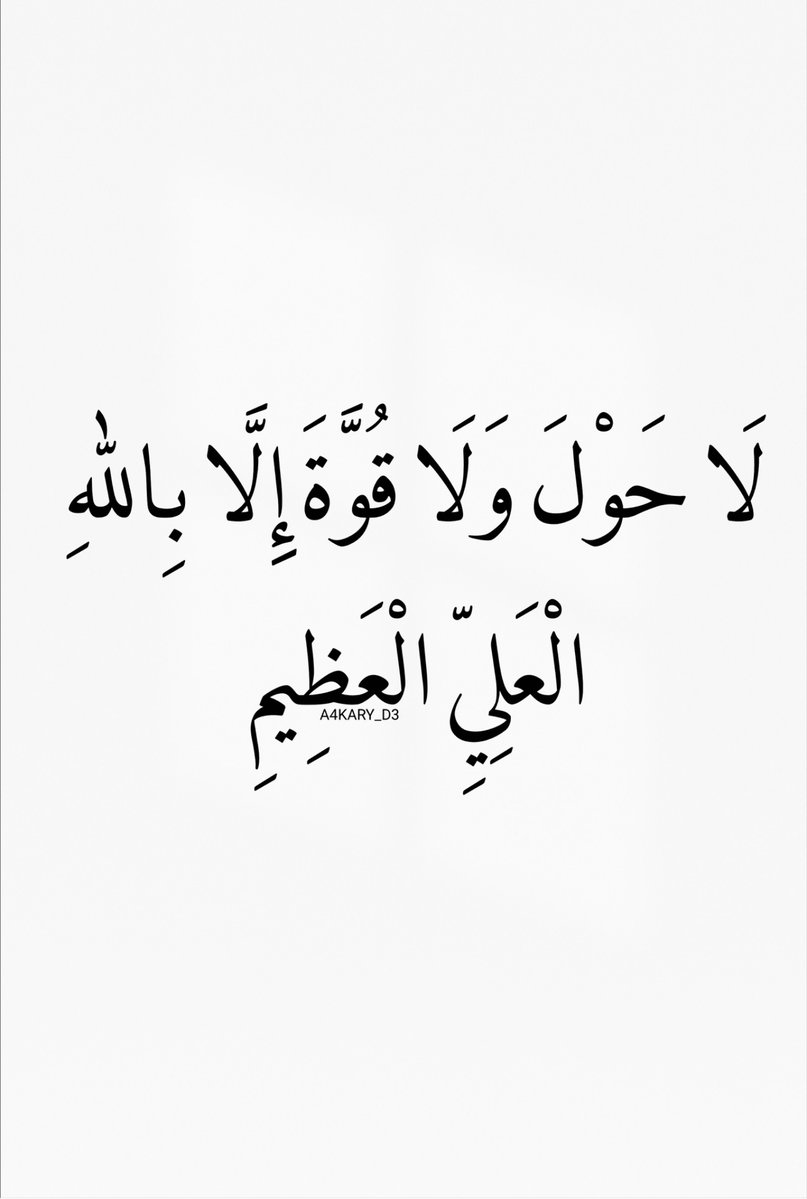 لَا حَوْلَ وَلَا قُوَّةَ إِلَّا بِاللهِ
الْعَلِيِّ الْعَظِيمِ
A4KARY_D3